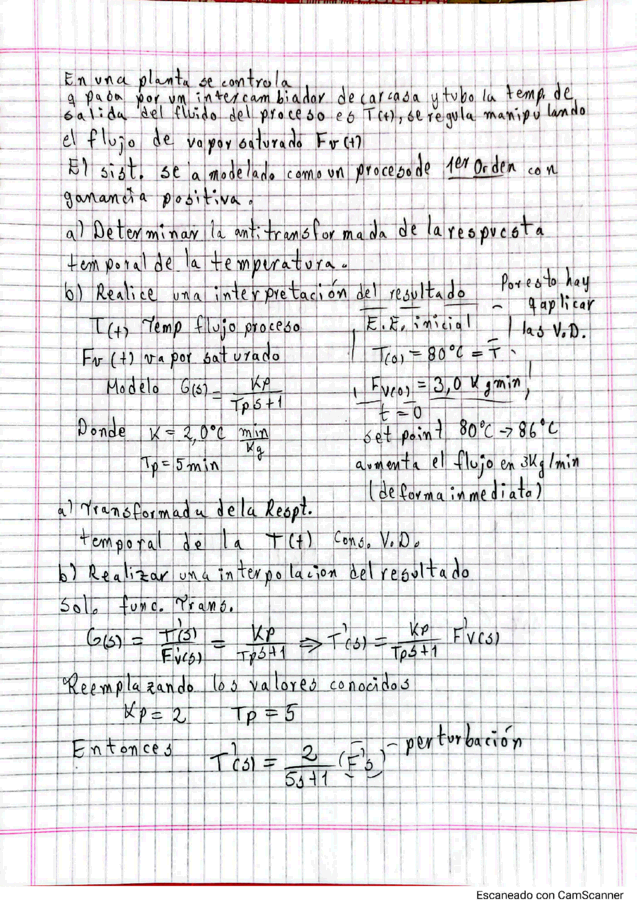 En una planta se controla
q pasa por un intercambiador de carcasa y tubo la temp. de
salida del fluido del proceso es T(t), se regula manipulando
el flujo de vapor saturado Fv(t)
El sist. se a modelado como un proceso de 1er Orden con
ganancia positiva.
a) Determinar la antitransformada de la respuesta
temporal de la temperatura.
b) Realice una interpretación del resultado
Por esto hay
q aplicar
las V.D.
T(t) Temp flujo proceso
Fv(t) vapor saturado
Modelo G(s) = Kp / Tps+1
Donde K = 2,0°C min/Kg
Tp = 5 min
E.E. inicial
T(0) = 80°C = T̄
Fv(0) = 3,0 Kg min
t = 0
set point 80°C → 86°C
aumenta el flujo en 3Kg/min
(de forma inmediata)
a) Transformada de la Respt.
temporal de la T(t) Cons. V.D.
b) Realizar una interpolacion del resultado
Sol. func. Trans.
G(s) = T'(s) / Fv'(s) = Kp / Tps+1 ⇒ T'(s) = Kp / Tps+1 F'v(s)
Reemplazando los valores conocidos
Kp = 2 Tp = 5
Entonces T'(s) = 2 / 5s+1 (F's) - perturbación
Escaneado con CamScanner